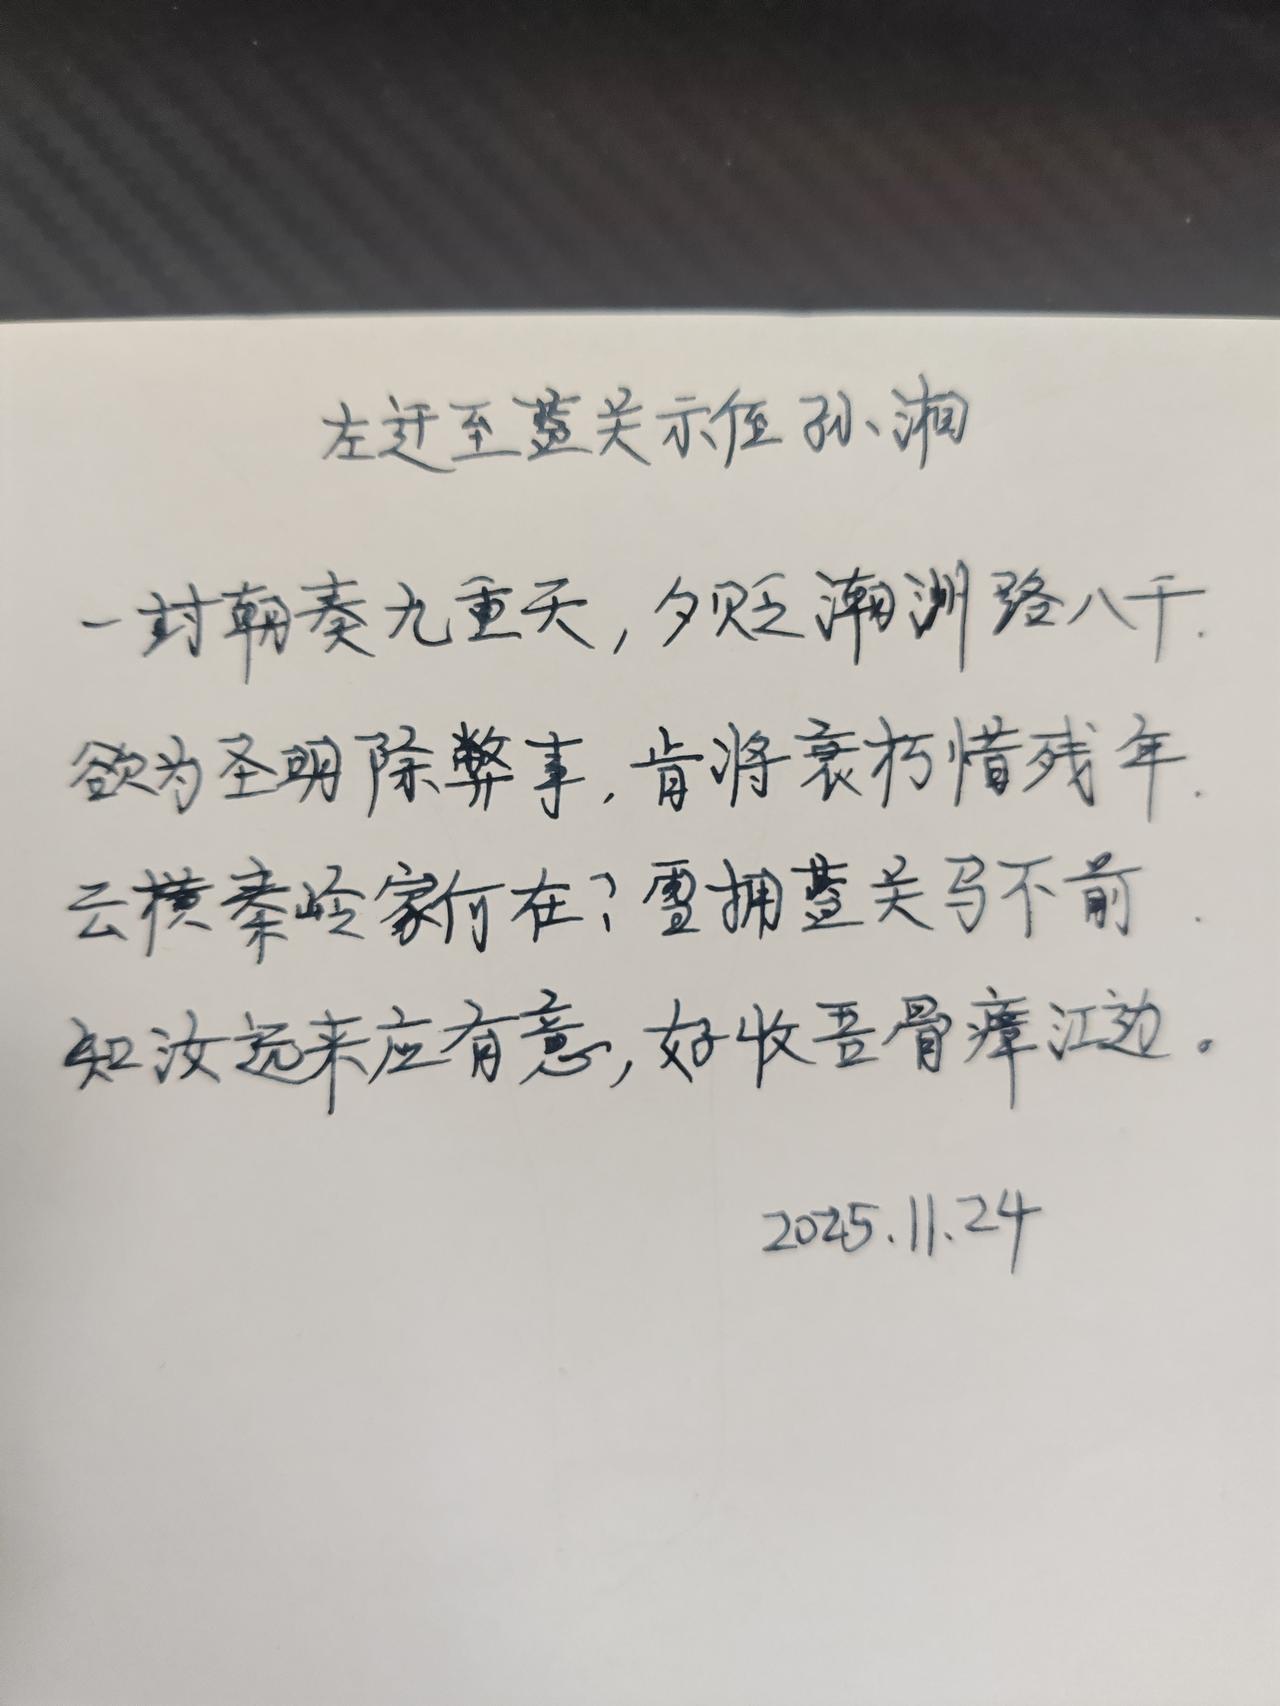 左迁至蓝关示侄孙湘
一封朝奏九重天，夕贬潮洲路八千.
欲为圣明除弊事，肯将衰朽惜残年.
云横秦岭家何在？雪拥蓝关马不前.
知汝远来应有意，好收吾骨瘴江边。
2025.11.24